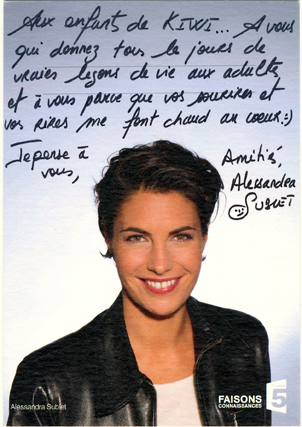 Aux enfants de KIWI... A vous
qui donnez tous les jours de
vraies leçons de vie aux adultes
et à vous parce que vos sourires et
vos rires me font chaud au coeur :)
Je pense à
vous,
Amitié,
Alessandra
SUBLET
Alessandra Sublet
FAISONS
CONNAISSANCES
5